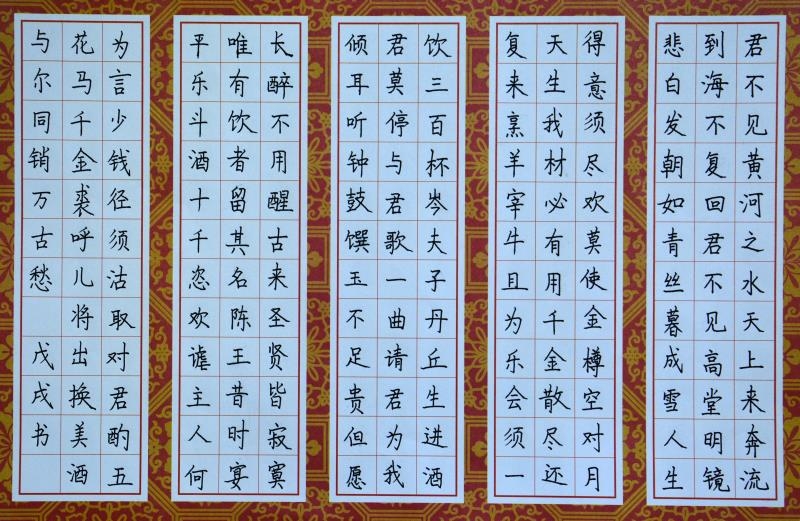 君不见黄河之水天上来奔流
到海不复回君不见高堂明镜
悲白发朝如青丝暮成雪人生
得意须尽欢莫使金樽空对月
天生我材必有用千金散尽还
复来烹羊宰牛且为乐会须一
饮三百杯岑夫子丹丘生进酒
君莫停与君歌一曲请君为我
倾耳听钟鼓馔玉不足贵但愿
长醉不用醒古来圣贤皆寂寞
唯有饮者留其名陈王昔时宴
平乐斗酒十千恣欢谑主人何
为言少钱径须沽取对君酌五
花马千金裘呼儿将出换美酒
与尔同销万古愁 戊戌书